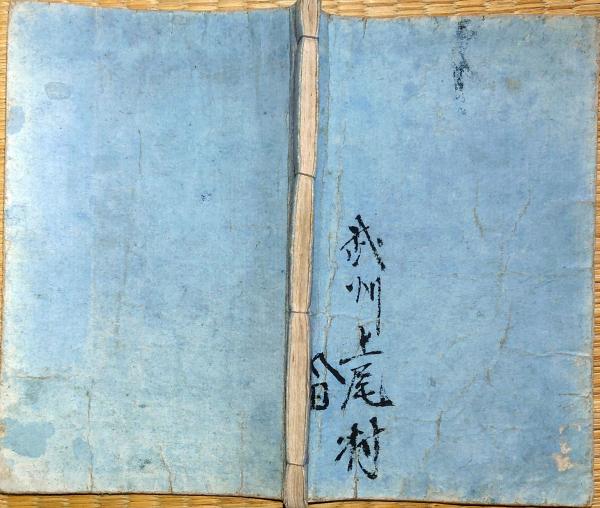 武州上尾村